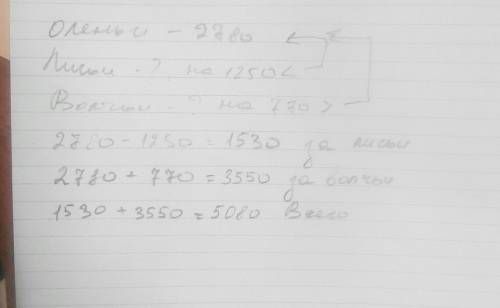 Оленьи - 2780
Лисьи - ? на 1250 <
Волчьи - ? на 770 >
2780 - 1250 = 1530 за лисьи
2780 + 770 = 3550 за волчьи
1530 + 3550 = 5080 Всего